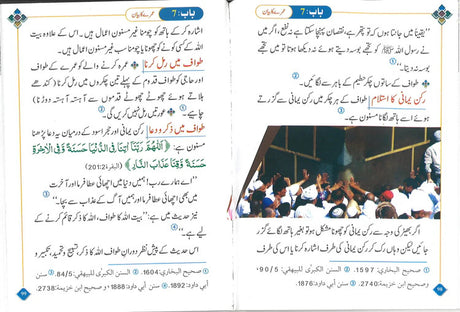 باب: 7 عمرے کا بیان
"یقیناً میں جانتا ہوں کہ تو پتھر ہے، نقصان پہنچا سکتا ہے نہ نفع، اگر میں
نے رسول اللہ ﷺ کو تجھے بوسہ دیتے ہوئے نہ دیکھا ہوتا تو میں تجھے بوسہ نہ
دیتا۔" ①
طواف کے ساتوں چکر حطیم کے باہر سے لگائیں۔ ②
رکن یمانی کا استلام طواف کے ہر چکر میں رکن یمانی سے گزرتے
ہوئے اسے ہاتھ لگانا مسنون ہے۔ ③
اگر بھیڑ کی وجہ سے رکن یمانی کو چھونا مشکل ہو تو بغیر ہاتھ لگائے گزر
جائیں لیکن وہاں رک کر رکن یمانی کی طرف اشارہ کرنا یا اس کی طرف
① صحيح البخاري: 1597. ② السنن الكبرٰى للبيهقي: 90/5
③ سنن أبي داود: 1876، وصحيح ابن خزيمة: 2740.
98
باب: 7 عمرے کا بیان
اشارہ کر کے ہاتھ کو چومنا غیر مسنون اعمال ہیں۔ اس کے علاوہ بیت
اللہ کے کسی کونے کو چھونا یا چومنا سب غیر مسنون اعمال ہیں۔
طواف میں رمل کرنا عمرہ کرنے والے کو عمرے کے طواف
اور حاجی کو طواف قدوم کے پہلے تین چکروں میں رمل کرنا (کندھے
ہلاتے ہوئے چھوٹے چھوٹے قدموں سے آہستہ آہستہ دوڑنا)
چاہیے۔ ① عورتیں رمل نہیں کریں گی۔ ②
طواف میں ذکر و دعا رکن یمانی اور حجر اسود کے درمیان یہ دعا پڑھنا
مسنون ہے: ﴿اَللّٰهُمَّ رَبَّنَآ اٰتِنَا فِی الدُّنْیَا حَسَنَةً وَّ فِی الْاٰخِرَةِ
حَسَنَةً وَّ قِنَا عَذَابَ النَّارِ﴾ (البقرة 201:2)
"اے ہمارے رب! ہمیں دنیا میں اچھائی عطا فرما اور آخرت
میں بھی اچھائی عطا فرما اور ہمیں آگ کے عذاب سے بچا۔" ③
نیز حدیث میں ہے: "بیت اللہ کا طواف، اللہ کا ذکر قائم کرنے کے لیے
ہے۔" ④
اس حدیث کے پیش نظر دورانِ طواف اللہ کا ذکر، تسبیح و تحمید، تکبیر و
① صحيح البخاري: 1604. ② السنن الكبرٰى للبيهقي: 84/5. ③ سنن
أبي داود: 1892. ④ سنن أبي داود: 1888، وصحيح ابن خزيمة: 2738.
99